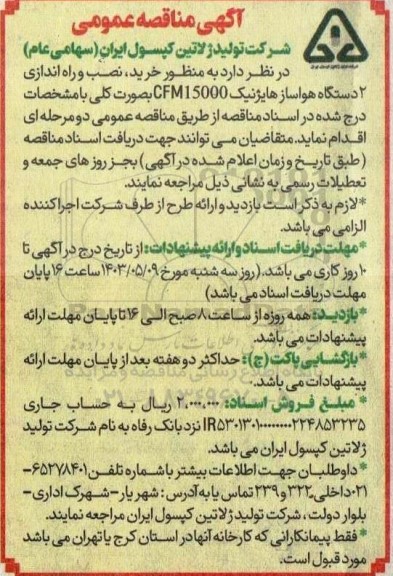 آگهی مناقصه عمومی
شرکت تولید ژلاتین کپسول ایران (سهامی عام)
در نظر دارد به منظور خرید، نصب و راه اندازی
۲ دستگاه هواساز هایژنیک CFM15000 بصورت کلی با مشخصات
درج شده در اسناد مناقصه از طریق مناقصه عمومی دو مرحله ای
اقدام نماید. متقاضیان می توانند جهت دریافت اسناد مناقصه
(طبق تاریخ و زمان اعلام شده در آگهی) بجز روز های جمعه و
تعطیلات رسمی به نشانی ذیل مراجعه نمایند.
*لازم به ذکر است بازدید و ارائه طرح از طرف شرکت اجرا کننده
الزامی می باشد.
*مهلت دریافت اسناد و ارائه پیشنهادات: از تاریخ درج در آگهی تا
۱۰ روز کاری می باشد. (روز سه شنبه مورخ ۱۴۰۳/۰۵/۰۹ ساعت ۱۶ پایان
مهلت دریافت اسناد می باشد)
*بازدید: همه روزه از ساعت ۸ صبح الی ۱۶ تا پایان مهلت ارائه
پیشنهادات می باشد.
*بازگشایی پاکت (ج): حداکثر دو هفته بعد از پایان مهلت ارائه
پیشنهادات می باشد.
* مبلغ فروش اسناد: ۲,۰۰۰,۰۰۰ ریال به حساب جاری
IR۵۳۰۱۳۰۱۰۰۰۰۰۰۰۰۲۲۴۸۵۳۲۳۵ نزد بانک رفاه به نام شرکت تولید
ژلاتین کپسول ایران می باشد.
* داوطلبان جهت اطلاعات بیشتر با شماره تلفن ۶۵۲۷۸۴۰۱-
۰۲۱ داخلی ۳۲۲ و ۲۳۹ تماس یا به آدرس : شهریار - شهرک اداری -
بلوار دولت ، شرکت تولید ژلاتین کپسول ایران مراجعه نمایند.
*فقط پیمانکارانی که کارخانه آنها در استان کرج یا تهران می باشد
مورد قبول است.